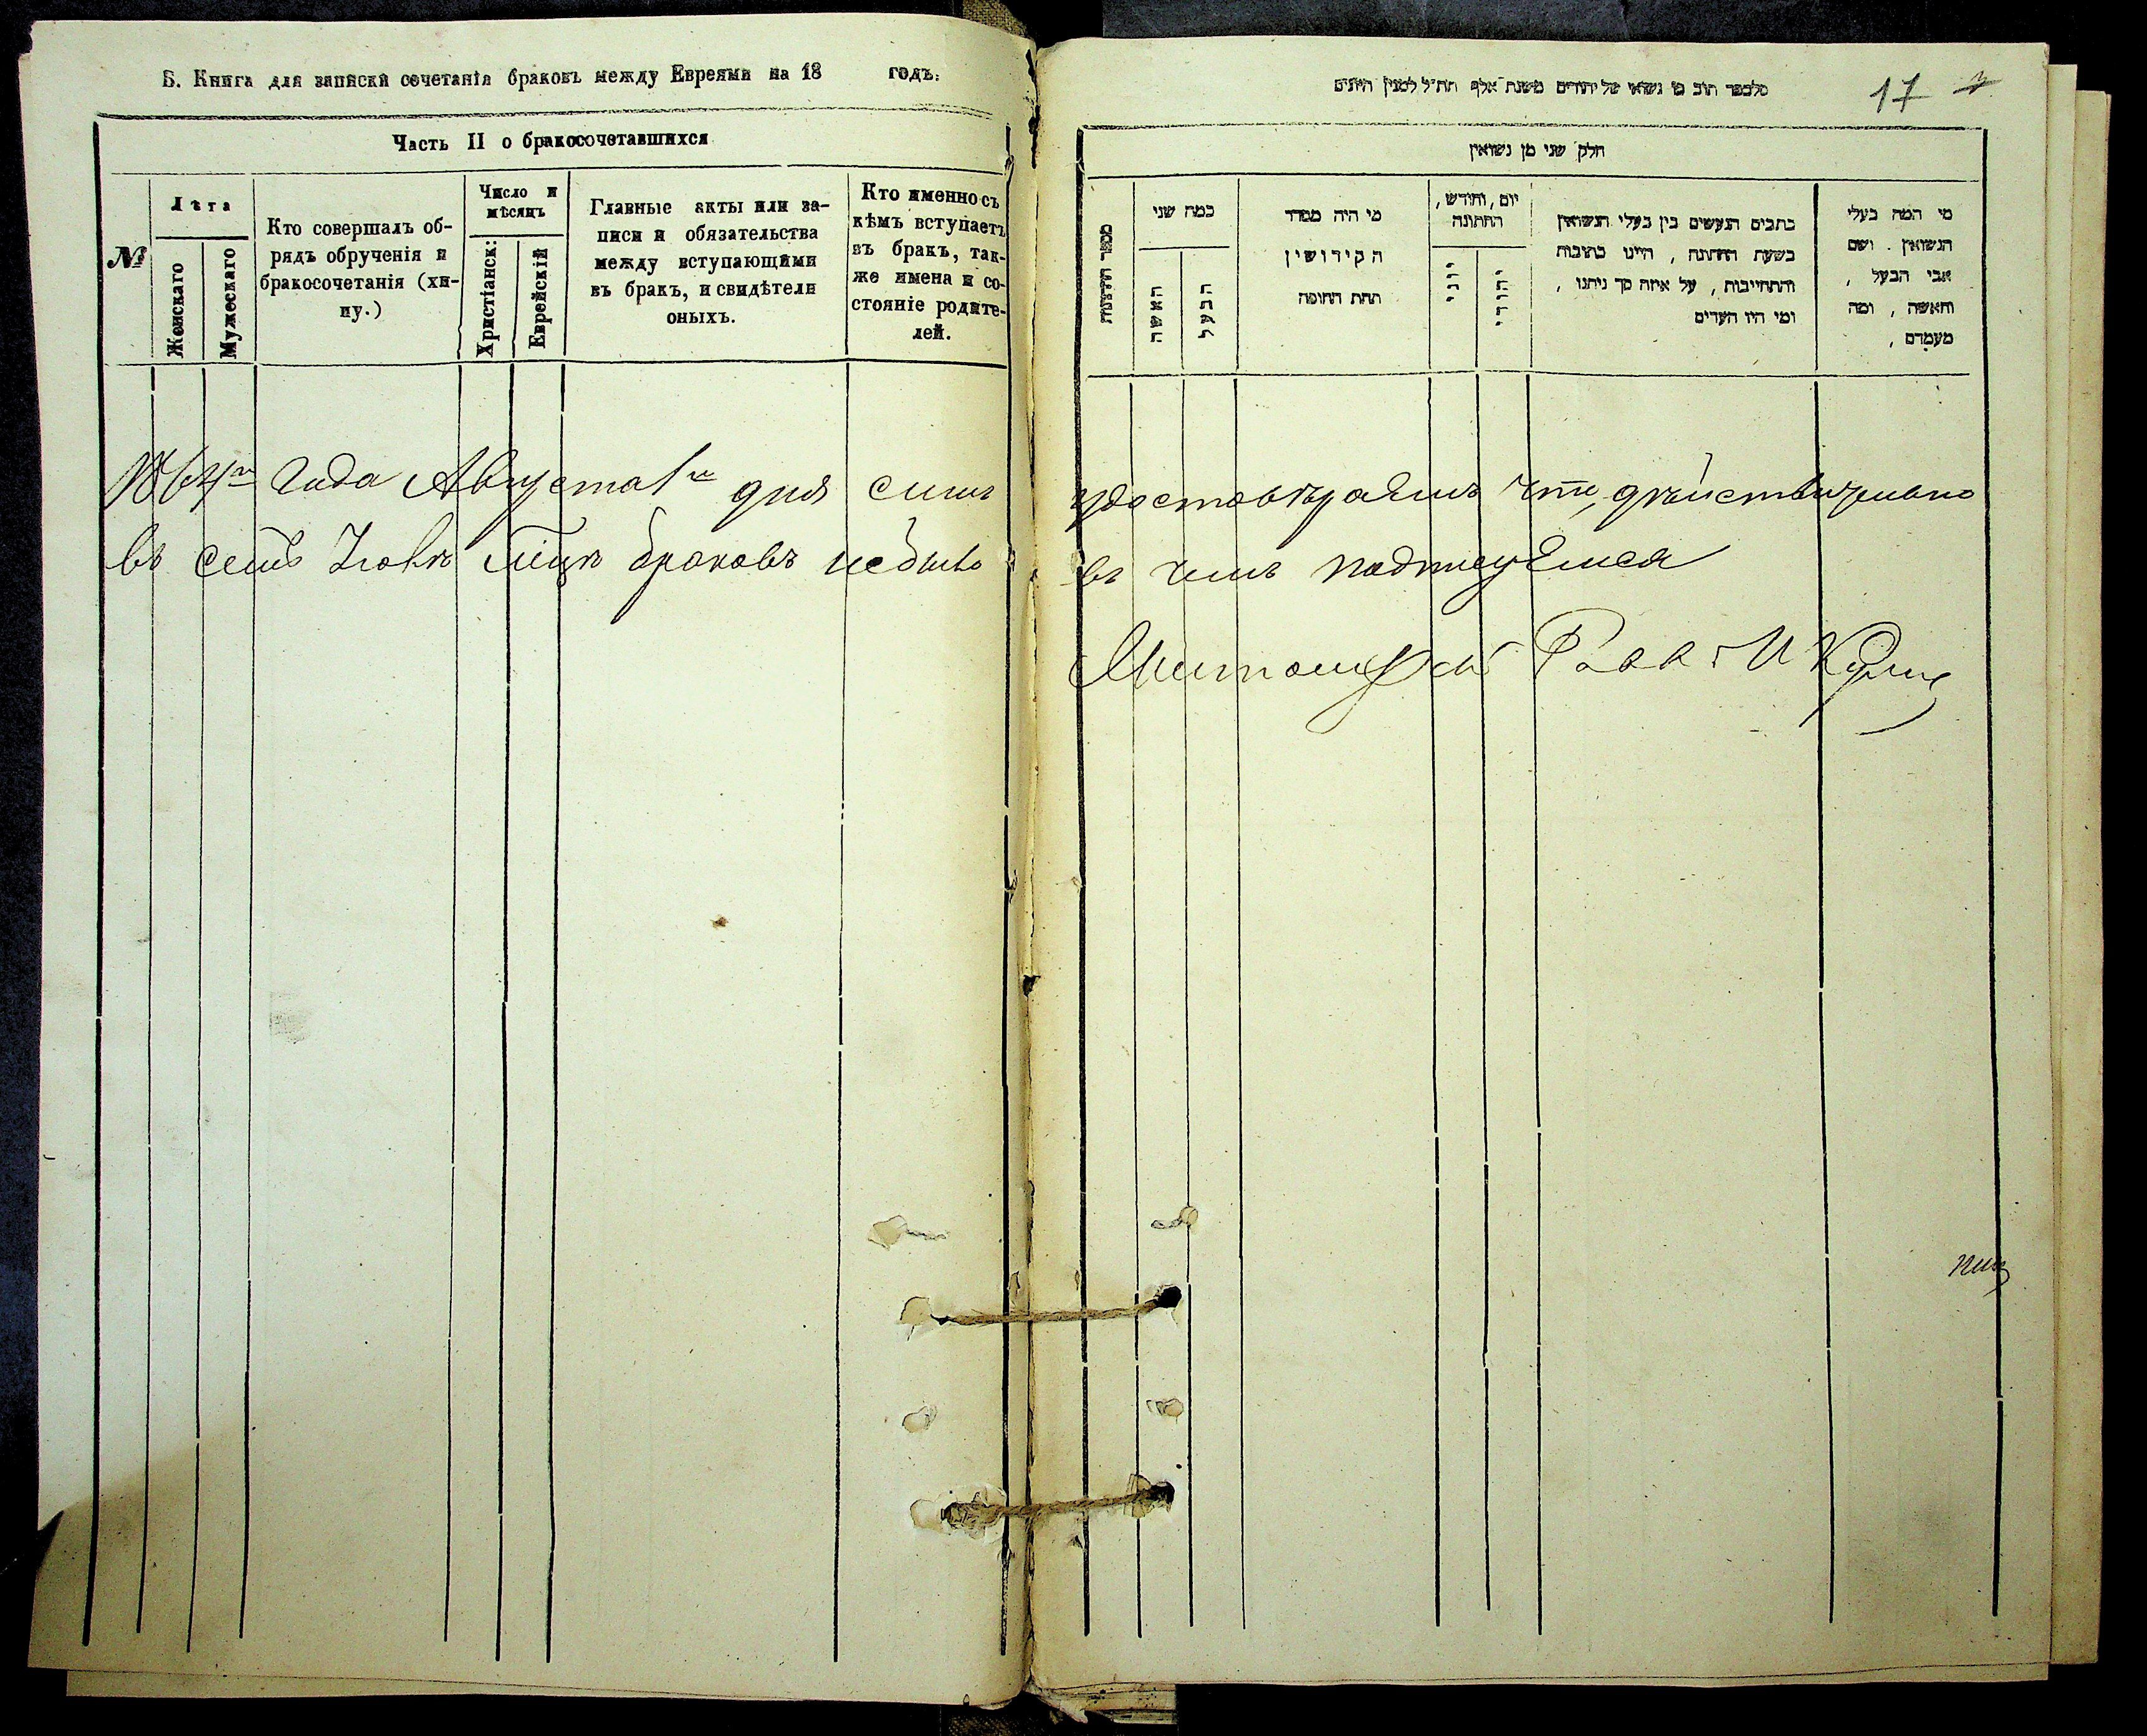 Б. Книга для записки сочетанія браковъ между Евреями на 18 годъ.
Часть II о бракосочетавшихся
№
Лѣта
Женскаго
Мужескаго
Кто совершалъ об-
рядъ обрученія и
бракосочетанія (хи-
пу.)
Число и
мѣсяцъ
Христіанск:
Еврейскій
Главные акты или за-
писи и обязательства
между вступающими
въ бракъ, и свидѣтели
оныхъ.
Кто именно съ
кѣмъ вступаетъ
въ бракъ, так-
же имена и со-
стояніе родите-
лей.
1864го года Августа 1го дня симъ
въ семъ Іюлѣ мѣсяцѣ браковъ небыло
17
חלק שני מן נשואין
מספר
כמה שני
האשה
הבעל
מי היה מסדר
הקידושין
תחת החופה
יום, וחודש,
החתונה
יוני
יהודי
כתבים הנעשים בין בעלי הנשואין
בשעת החתונה, היינו כתובות
והתחייבות, על איזה סך ניתנו,
ומי היו העדים
מי המה בעלי
הנשואין. ושם
אבי הבעל,
והאשה, ומה
מעמדם,
удостовѣряемъ что дѣйствительно
въ чемъ подписуемся